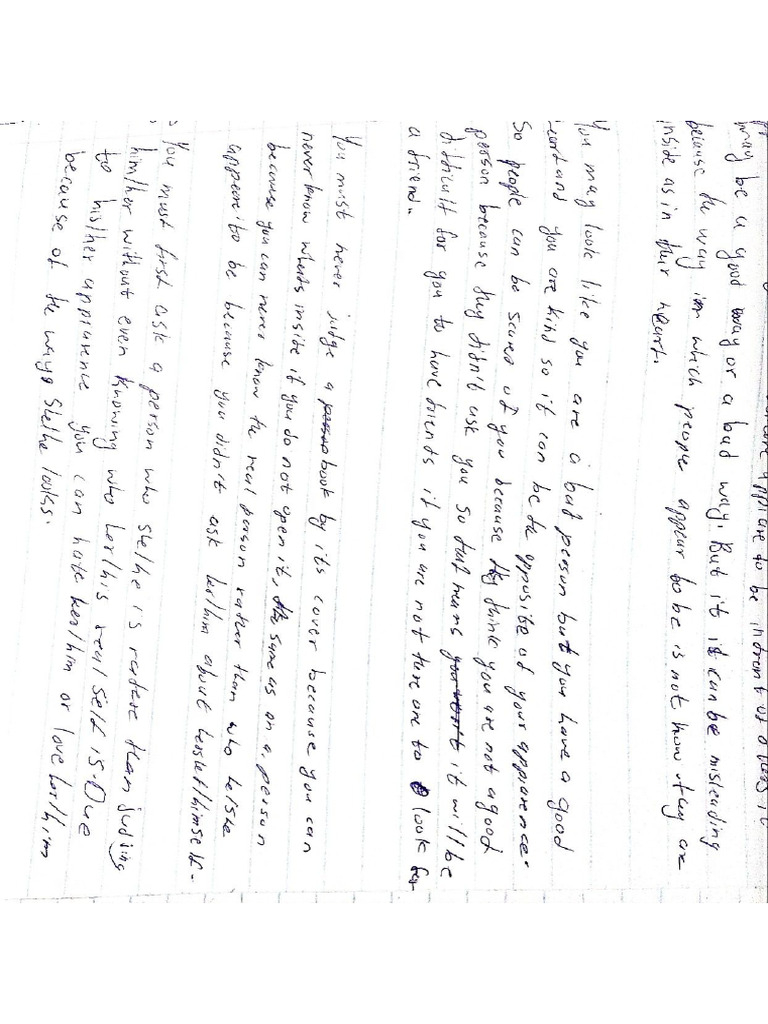 appeare to be infront of others it
may be a good way or a bad way. But it it can be misleading
because the way in which people appear to be is not how they are
inside as in their heart.
You may look like you are a bad person but you have a good
heart and you are kind so it can be the opposite of your apperence.
So people can be scared of you because they think you are not a good
person because they didn't ask you so that means it will be
difficult for you to have friends if you are not there are to look for
a friend.
You must never judge a book by its cover because you can
never know whats inside if you do not open it, the same as on a person
because you can never know the real person rather than who he/she
appeare to be because you didn't ask her/him about herslef/himself.
You must first ask a person who She/he is rathere than judjing
him/her without even knowing who her/his real self is. Due
to his/her appiarence you can hate her/him or love her/him
because of the ways She/he looks.